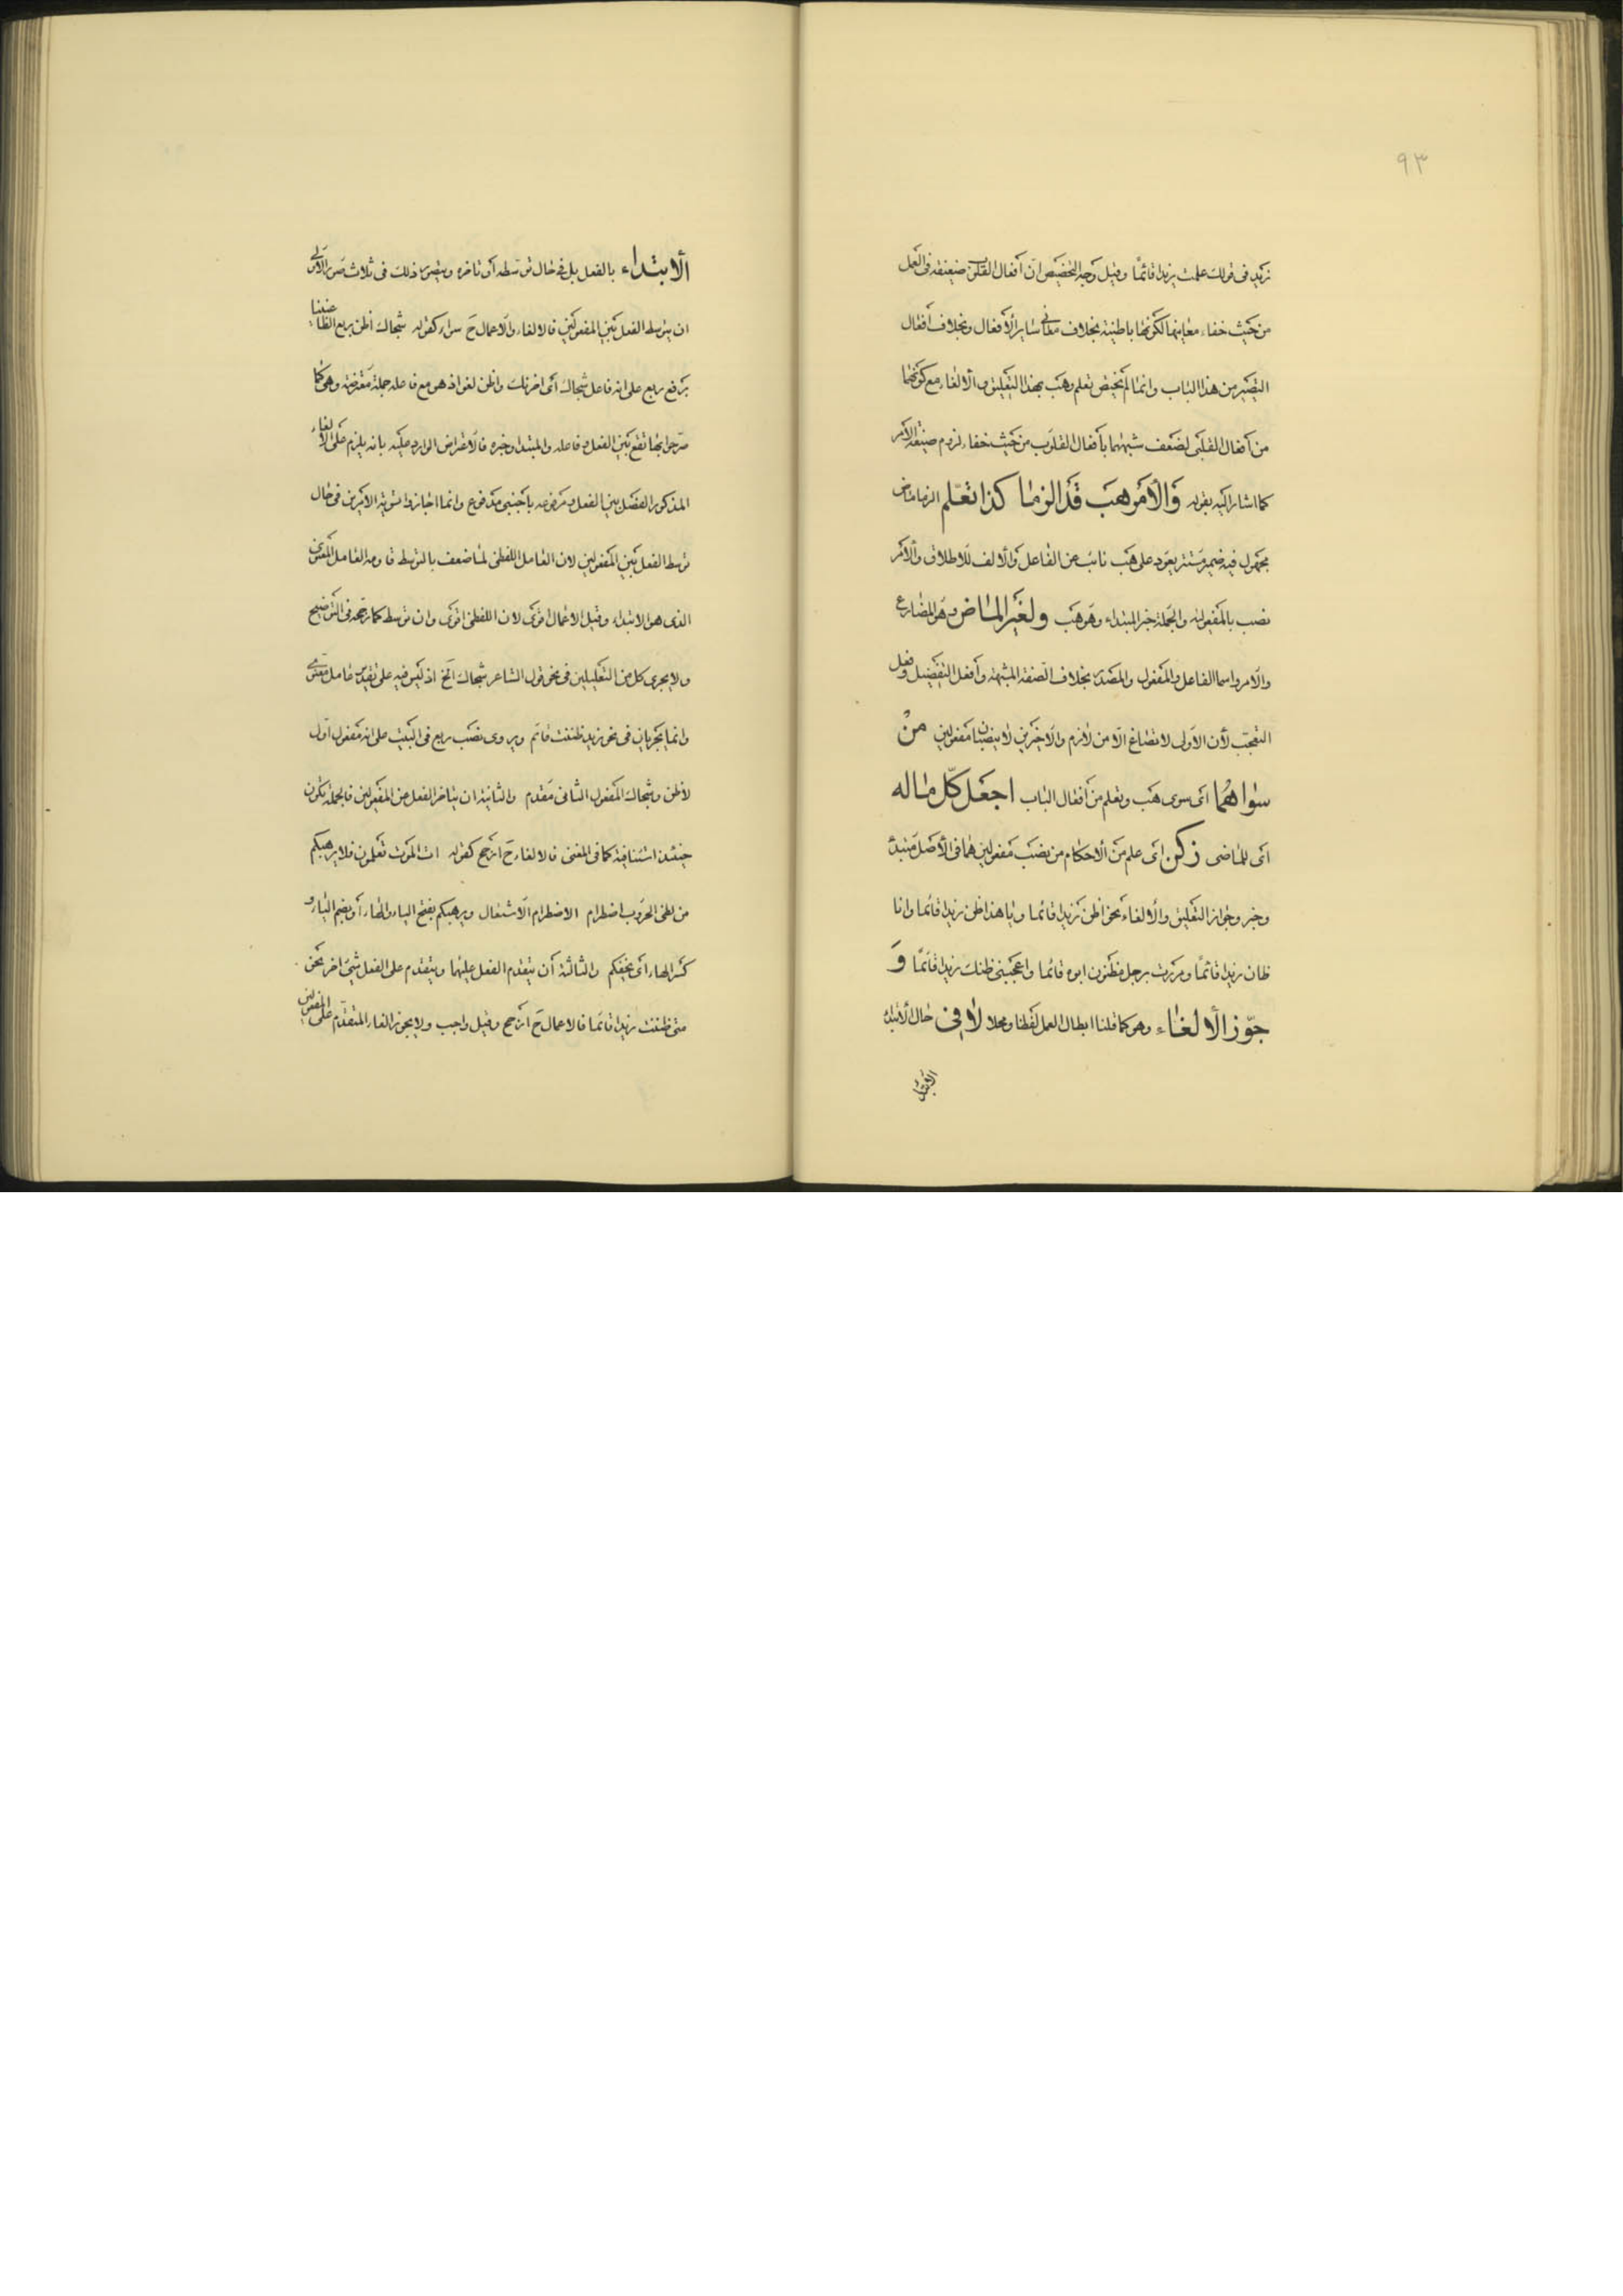 ٩٣
زيد فى قولك علمت زيدا قائمًا وقيل وجه التخصيص انّ أفعال القلوب ضعيفة فى العمل
من حيث خفاء معانيها لكونها باطنية بخلاف معانى سائر الأفعال وبخلاف أفعال
التصيير من هذا الباب وانما لم يختص تعلم وهب بهذا التعليق والألغاء مع كونهما
من أفعال القلبى لضعف شبههما بأفعال القلوب من حيث خفاء لزوم صيغة الأمر
كما اشار اليه بقوله وَالأمر هب قد الزما كذا تعلّم الزما ماض
مجهول فيه ضمير مستتر يعود على هب نائب عن الفاعل والألف للاطلاق والأمر
نصب بالمفعولية والجملة خبر المبتداء وهو هب ولغير الماض وهو المضارع
والأمر واسما الفاعل والمفعول والمصدر بخلاف الصفة المشبهة وأفعل التفضيل وفعل
التعجّب لأن الأولى لا تصاغ الّا من لازم والأخيرين لا ينصبان مفعولين منْ
سواهُما اى سوى هب وتعلم من أفعال الباب اجعل كلّ ما له
اى للماضى زكن اى علم من الاحكام من نصب مفعولين هما فى الأصل مبتدأ
وخبر وجواز التعليق والألغاء نحو اظن زيدا قائما ويا هذا ظن زيدا قائما وانا
ظان زيدا قائمًا ومررت برجل مظنون ابوه قائما واعجبنى ظنك زيدا قائمًا وَ
جوّز الألغاء وهو كما قلنا ابطال العمل لفظا ومحلا لا فى حال الأبتداء
الألابتداء بالفعل بل فى حال توسطه أو تاخره ويتصور ذلك فى ثلاث صور الأولى
ان يتوسط الفعل بين المفعولين فالالغاء والاعمال ح سواء كقوله شجاك أظن ربع الظاعنينا
برفع ربع على انه فاعل شجاك أى احزنك واظن لغو اذ هو مع فاعله جملة معترضة وهى كما
صرّحوا بها تقع بين الفعل وفاعله والمبتدا وخبره فالأعتراض الوارد عليه بانه يلزم على الالغاء
المذكور الفصل بين الفعل ومرفوعه بأجنبى مدفوع وانما اجازوا تسوية الأمرين فى حال
توسط الفعل بين المفعولين لان العامل اللفظى لما ضعف بالتوسط قاومه العامل المعنوى
الذى هو الابتداء وقيل الاعمال اقوى لان اللفظى اقوى وان توسط كما رجحه فى التوضيح
ولا يجرى كل من التعليلين فى نحو قول الشاعر شجاك الخ اذ ليس فيه على تقدير عامل معنوى
وانما يجريان فى نحو زيد ظننت قائم ويروى بنصب ربع فى البيت على انه مفعول أول
لأظن وشجاك المفعول الثانى مقدم والثانية ان يتاخر الفعل عن المفعولين فالجملة تكون
حينئذ استئنافية كما فى المغنى فالالغاء ح ارجح كقوله ات الموت تعلمون فلا يرهبكم
من لظى الحروب اضطرام الاضطرام الاشتعال ويرهبكم بفتح الياء والهاء أو بضم الياء و
كسر الهاء أى يخيفكم والثالثة أن يتقدم الفعل عليهما ويتقدم على الفعل شئ اخر نحو
متى ظننت زيدا قائما فالاعمال ح ارجح وقيل واجب ولا يجوز الغاء المتقدّم على المفعولين